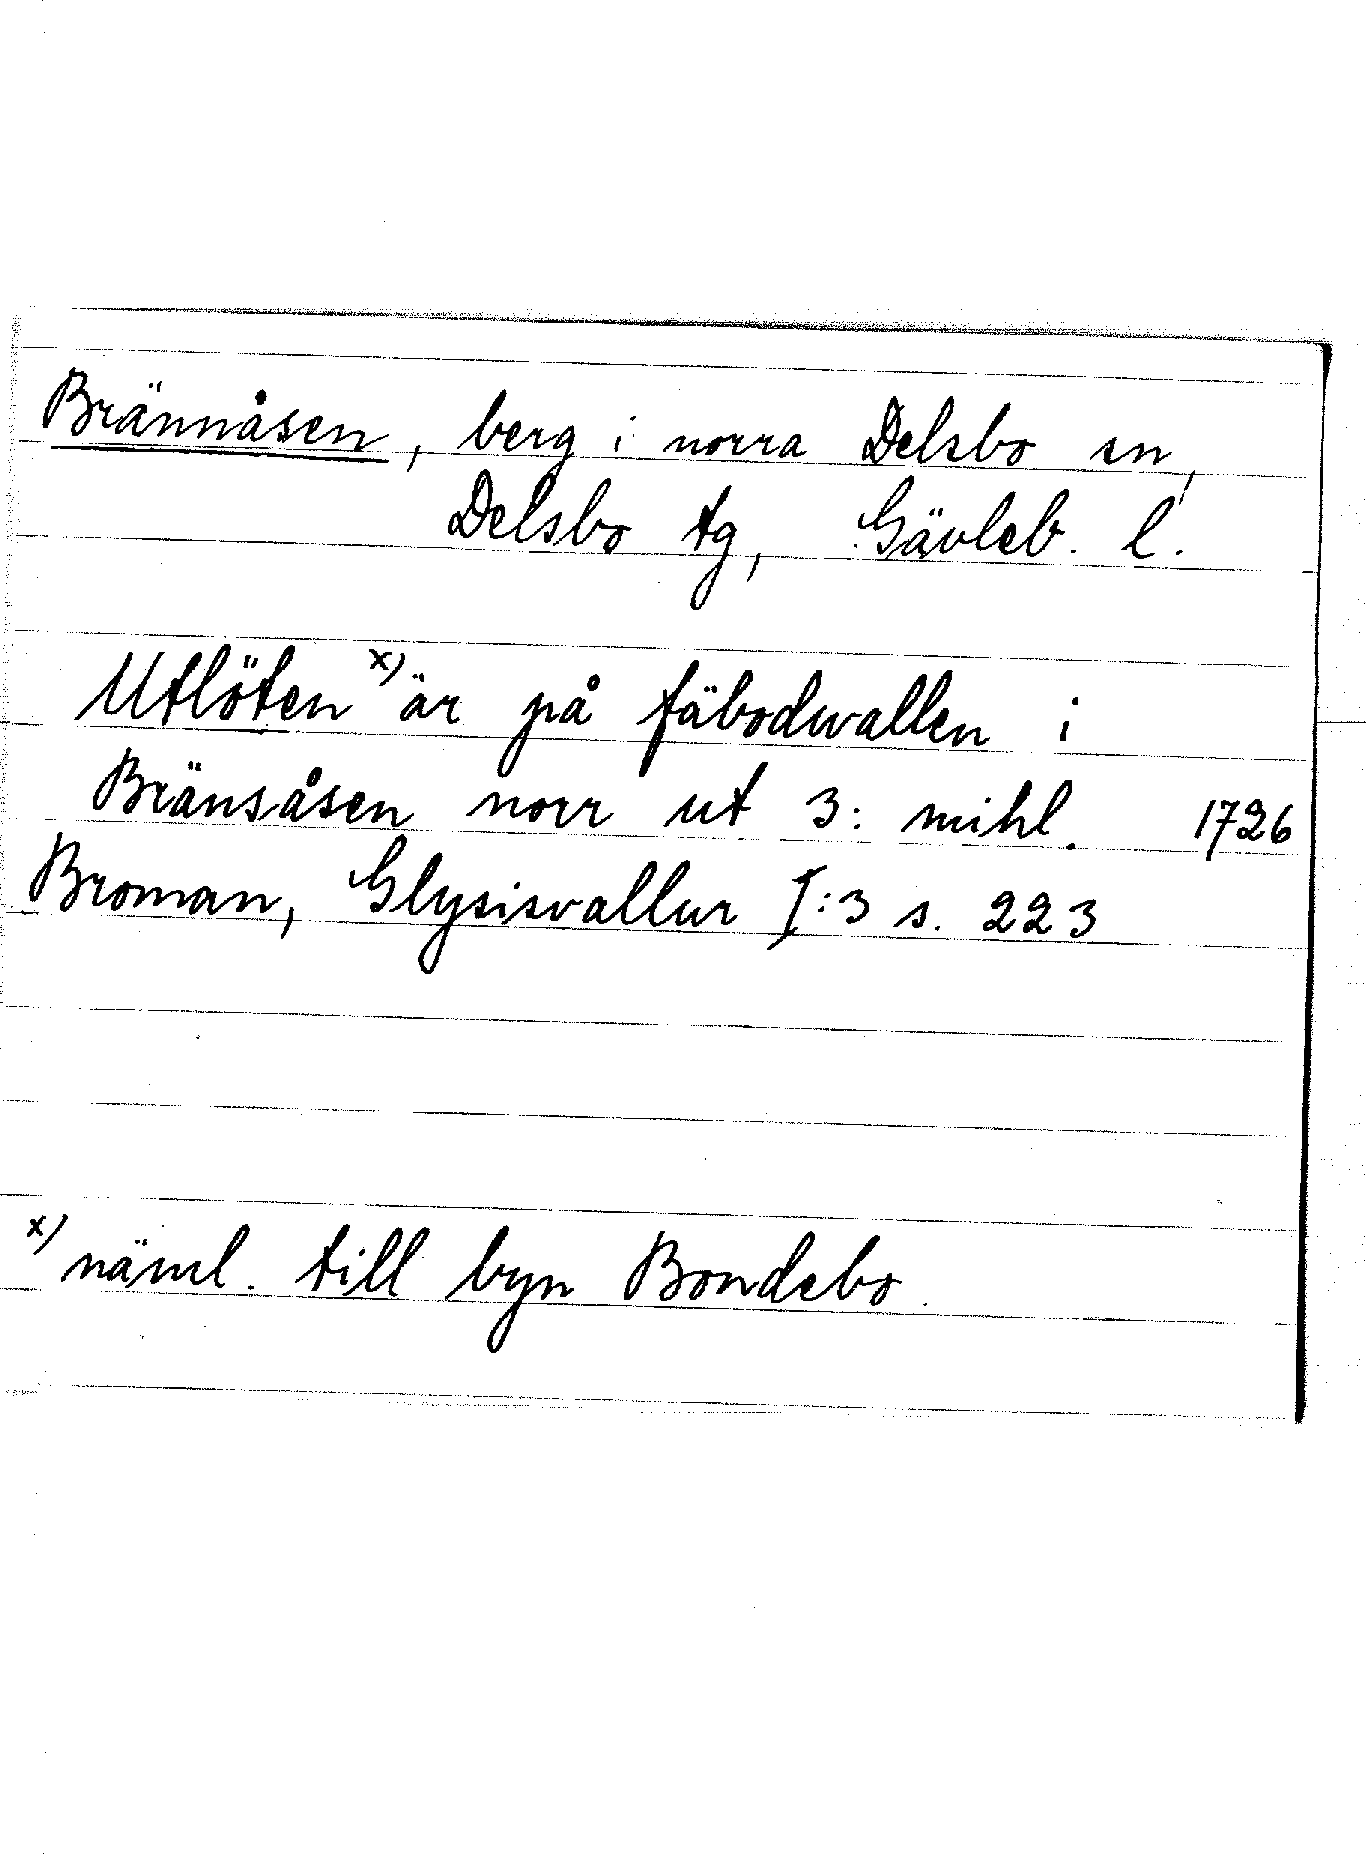 Brännåsen, berg i norra Delsbo sn,
Delsbo tg, Gävleb. l.
Utlöten x) är på fäbodwallen i
Bränsåsen norr ut 3: mihl. 1726
Broman, Glysisvallur I:3 s. 223
x) näml. till byn Bondebo.